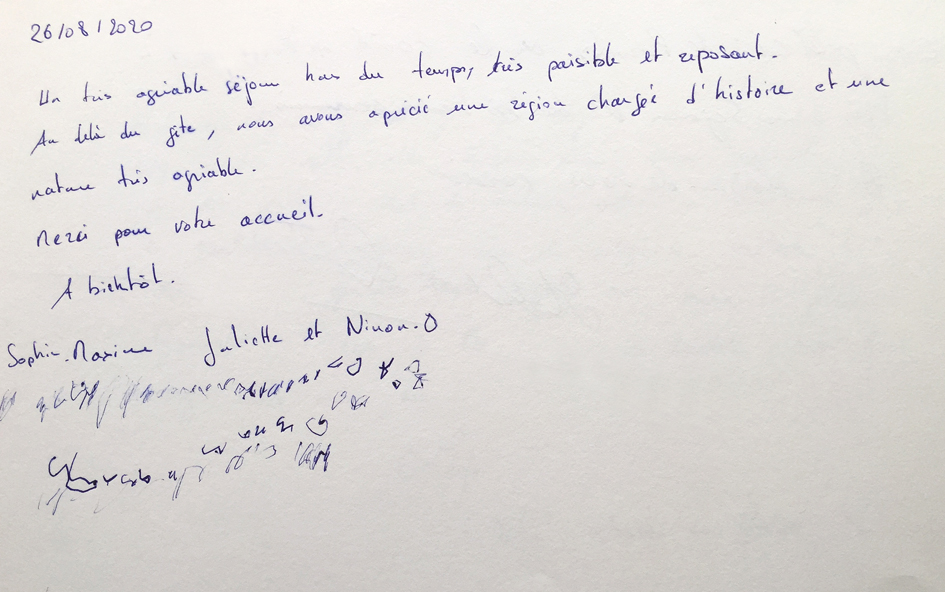 26/08/2020
Un très agréable séjour hors du temps, très paisible et reposant.
Au delà du gîte, nous avons aprécié une région chargée d'histoire et une
nature très agréable.
Merci pour votre accueil.
A bientôt.
Sophie. Maxime Juliette et Ninon.